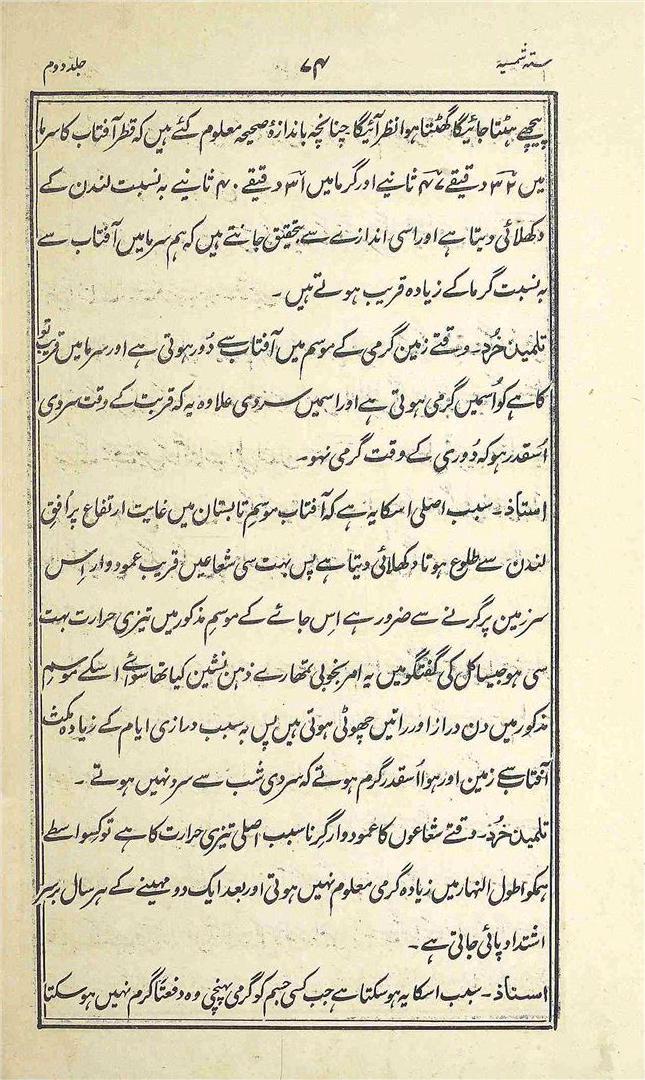 ستہ شمسیہ ۷۴ جلد دوم
پیچھے ہٹتا جائیگا گھٹتا ہوا نظر آئیگا چنانچہ باندازۂ صحیحہ معلوم کئے ہیں کہ قطر آفتاب کا سرما
میں ۳۲ دقیقے ۴۷ ثانیے اور گرما میں ۳۱ دقیقے ۴۰ ثانیے بہ نسبت لندن کے
دکھلائی دیتا ہے اور اسی اندازے سے بتحقیق جانتے ہیں کہ ہم سرما میں آفتاب سے
بہ نسبت گرما کے زیادہ قریب ہوتے ہیں ۔
تلمیذ خُرد ۔ وقتے زمین گرمی کے موسم میں آفتاب سے دُور ہوتی ہے اور سرما میں قریب تو
کاہے کو اُسمیں گرمی ہوتی ہے اور اسمیں سردی علاوہ یہ کہ قربت کے وقت سردی
اُسقدر ہو کہ دُوری کے وقت گرمی نہو ۔
اُستاذ ۔ سبب اصلی اسکا یہ ہے کہ آفتاب موسم تابستان میں غایت ارتفاع پر اُفق
لندن سے طلوع ہوتا دکھلائی دیتا ہے پس بہت سی شعاعیں قریب عمودوار اِس
سرزمین پر گرنے سے ضرور ہے اِس جائے کے موسمِ مذکور میں تیزی حرارت بہت
سی ہو جیسا کل کی گفتگو میں یہ امر بخوبی تمھارے ذہن نشین کیا تھا سوائے اسکے موسمِ
مذکور میں دن دراز اور راتیں چھوٹی ہوتی ہیں پس بہ سبب درازی ایام کے زیادہ مکث
آفتاب سے زمین اور ہوا اُسقدر گرم ہوتے کہ سردی شب سے سرد نہیں ہوتے ۔
تلمیذ خُرد ۔ وقتے شعاعوں کا عمودوار گرنا سبب اصلی تیزی حرارت کا ہے تو کسواسطے
ہمکو اطول النہار میں زیادہ گرمی معلوم نہیں ہوتی اور بعد ایک دو مہینے کے ہر سال برسر
اشتداد پائی جاتی ہے ۔
اُستاذ ۔ سبب اسکا یہ ہو سکتا ہے جب کسی جسم کو گرمی پہنچی وہ دفعتًا گرم نہیں ہو سکتا